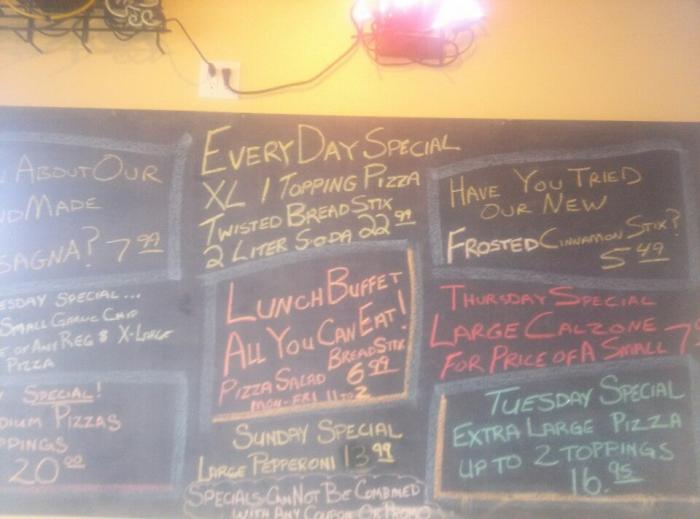 About Our
Made
7 99
Special...
Small Garlic Chip
of Any Reg $ X-Large
Pizza
Special!
Pizzas
20 00
EveryDay Special
XL 1 Topping Pizza
Twisted BreadStix
2 Liter Soda 22 99
Lunch Buffet
All You Can Eat!
Pizza Salad BreadStix
6 99
Mon-Fri 11 to 2
Sunday Special
Large Pepperoni 13 99
Specials Can Not Be Combined
With Any Coupon Or Promo
Have You Tried
Our New
Frosted Cinnamon Stix?
5 49
Thursday Special
Large Calzone
For Price of A Small 7.
Tuesday Special
Extra Large Pizza
Up To 2 Toppings
16.95